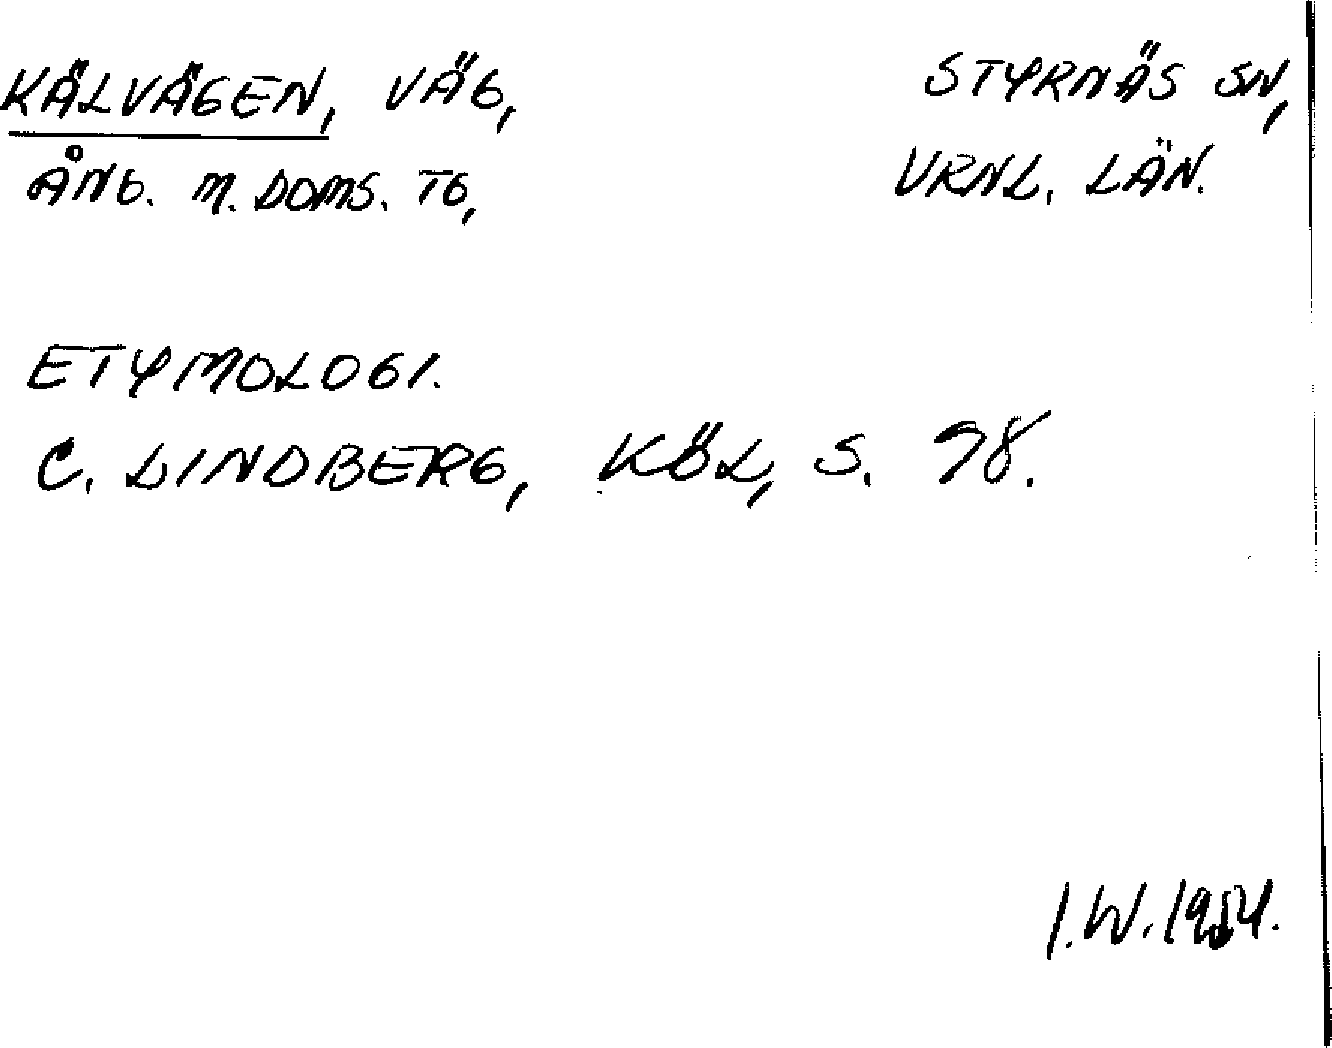 KÄLVÄGEN, VÄG,
ÅNG. M. DOMS. TG,
STYRNÄS SN,
VRNL. LÄN.
ETYMOLOGI.
C. LINDBERG, KÖL, S. 98.
I.W. 1984.